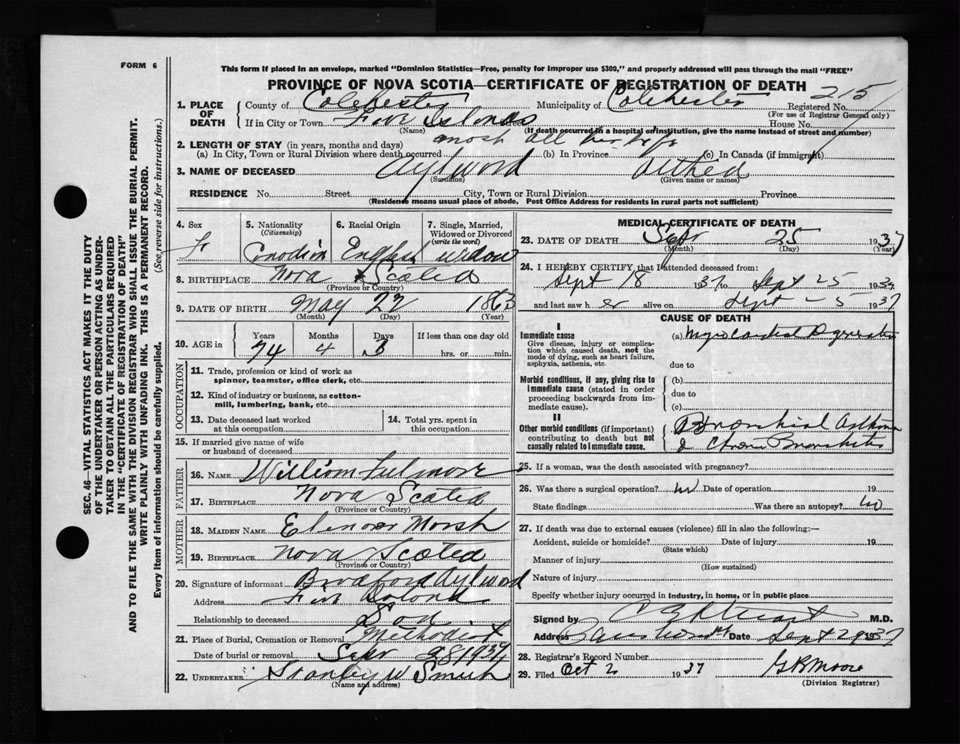 FORM 6
This form if placed in an envelope, marked "Dominion Statistics—Free, penalty for improper use $300," and properly addressed will pass through the mail "FREE"
PROVINCE OF NOVA SCOTIA—CERTIFICATE OF REGISTRATION OF DEATH
1. PLACE OF DEATH
County of Colchester Municipality of Colchester Registered No. 215
(For use of Registrar General only)
If in City or Town Five Islands Street House No.
(Name) (If death occurred in a hospital or institution, give the name instead of street and number)
2. LENGTH OF STAY (in years, months and days) most all her life
(a) In City, Town or Rural Division where death occurred (b) In Province (c) In Canada (if immigrant)
3. NAME OF DECEASED Aylword
(Surname) (Given name or names)
RESIDENCE No. Street City, Town or Rural Division Province
(Residence means usual place of abode. Post Office Address for residents in rural parts not sufficient)
4. Sex F
5. Nationality (Citizenship) Canadian
6. Racial Origin English
7. Single, Married, Widowed or Divorced (write the word) widow
8. BIRTHPLACE Nova Scotia
(Province or Country)
9. DATE OF BIRTH May 22 1863
(Month) (Day) (Year)
10. AGE in Years Months Days If less than one day old
74 4 3 hrs. or min.
OCCUPATION
11. Trade, profession or kind of work as spinner, teamster, office clerk, etc.
12. Kind of industry or business, as cotton-mill, lumbering, bank, etc.
13. Date deceased last worked at this occupation
14. Total yrs. spent in this occupation
15. If married give name of wife or husband of deceased
FATHER
16. NAME William Fulmore
17. BIRTHPLACE Nova Scotia
(Province or Country)
MOTHER
18. MAIDEN NAME Elenor Morsh
19. BIRTHPLACE Nova Scotia
(Province or Country)
20. Signature of informant Bradford Aylword
Address Five Islands
Relationship to deceased Son
21. Place of Burial, Cremation or Removal Methodist
Date of burial or removal Sept 28 1937
22. UNDERTAKER Stanley W Smith
(Name and address)
MEDICAL CERTIFICATE OF DEATH
23. DATE OF DEATH Sept 25 1937
(Month) (Day) (Year)
24. I HEREBY CERTIFY that I attended deceased from:
Sept 18 1937 to Sept 25 1937
and last saw her alive on Sept 25 1937
CAUSE OF DEATH
I
Immediate cause
Give disease, injury or complication which caused death, not the mode of dying, such as heart failure, asphyxia, asthenia, etc.
(a) Myocardial Degeneration
due to
Morbid conditions, if any, giving rise to immediate cause (stated in order proceeding backwards from immediate cause).
(b)
due to
(c)
II
Other morbid conditions (if important) contributing to death but not causally related to immediate cause.
Bronchial Asthma
& Chronic Bronchitis
25. If a woman, was the death associated with pregnancy?
26. Was there a surgical operation? no Date of operation 19
State findings Was there an autopsy? no
27. If death was due to external causes (violence) fill in also the following:—
Accident, suicide or homicide? Date of injury 19
(State which)
Manner of injury
(How sustained)
Nature of injury
Specify whether injury occurred in industry, in home, or in public place
Signed by M.D.
Address Date Sept 29 1937
28. Registrar's Record Number
29. Filed Oct 2 1937 G R Moore
(Division Registrar)
SEC. 46—VITAL STATISTICS ACT MAKES IT THE DUTY
OF THE UNDERTAKER OR PERSON ACTING AS UNDER-
TAKER TO OBTAIN ALL THE PARTICULARS REQUIRED
IN THE "CERTIFICATE OF REGISTRATION OF DEATH"
AND TO FILE THE SAME WITH THE DIVISION REGISTRAR WHO SHALL ISSUE THE BURIAL PERMIT.
WRITE PLAINLY WITH UNFADING INK. THIS IS A PERMANENT RECORD.
Every item of information should be carefully supplied. (See reverse side for instructions.)